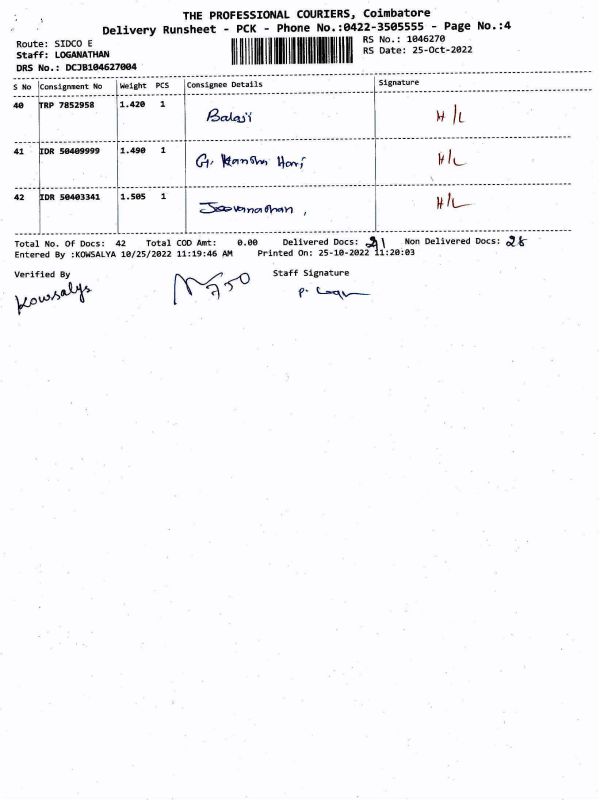 THE PROFESSIONAL COURIERS, Coimbatore
Delivery Runsheet - PCK - Phone No.:0422-3505555 - Page No.:4
Route: SIDCO E
RS No.: 1046270
Staff: LOGANATHAN
RS Date: 25-Oct-2022
DRS No.: DCJB104627004
S No Consignment No Weight PCS Consignee Details Signature
40 TRP 7852958 1.420 1 Balaji H/L
41 IDR 50409999 1.490 1 G. Hari H/L
42 IDR 50403341 1.505 1 H/L
Total No. Of Docs: 42 Total COD Amt: 0.00 Delivered Docs: Non Delivered Docs:
Entered By :KOWSALYA 10/25/2022 11:19:46 AM Printed On: 25-10-2022 11:20:03
Verified By Staff Signature
Kowsalya